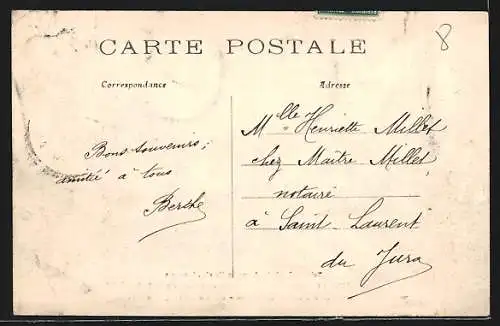 8
CARTE POSTALE
Correspondance
Adresse
Bons souvenirs,
amitié à tous
Berthe
Mlle Henriette Millet
chez Maître Millet
notaire
à Saint-Laurent
du Jura